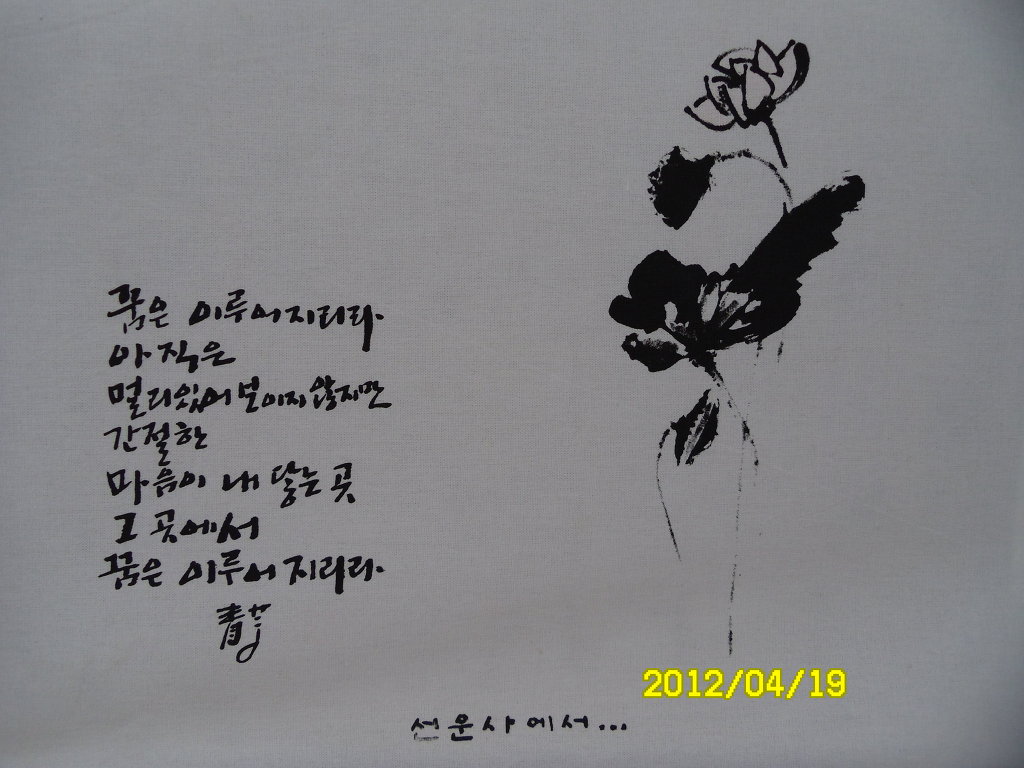 꿈은 이루어지리라.
아직은
멀리있어 보이지 않지만
간절한
마음이 내 닿는 곳
그 곳에서
꿈은 이루어지리라.
선운사에서...
2012/04/19